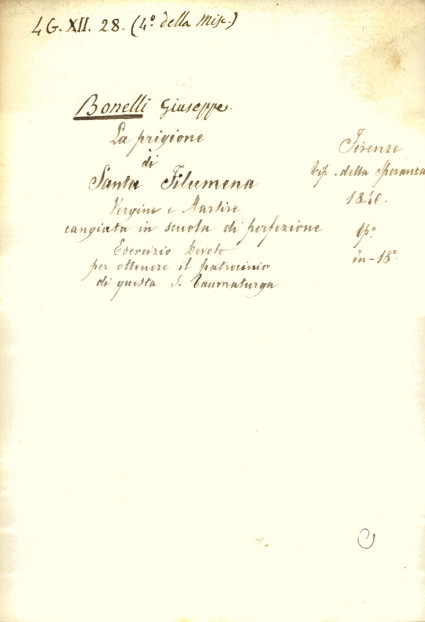 4 G. XII. 28. (4º della Misc.)
Bonelli Giuseppe.
La prigione
di
Santa Filumena
Vergine e Martire
cangiata in scuola di perfezione
Esercizio devoto
per ottenere il patrocinio
di questa S. Taumaturga
Firenze
Tip. della Speranza
1840.
1pº
in-18º